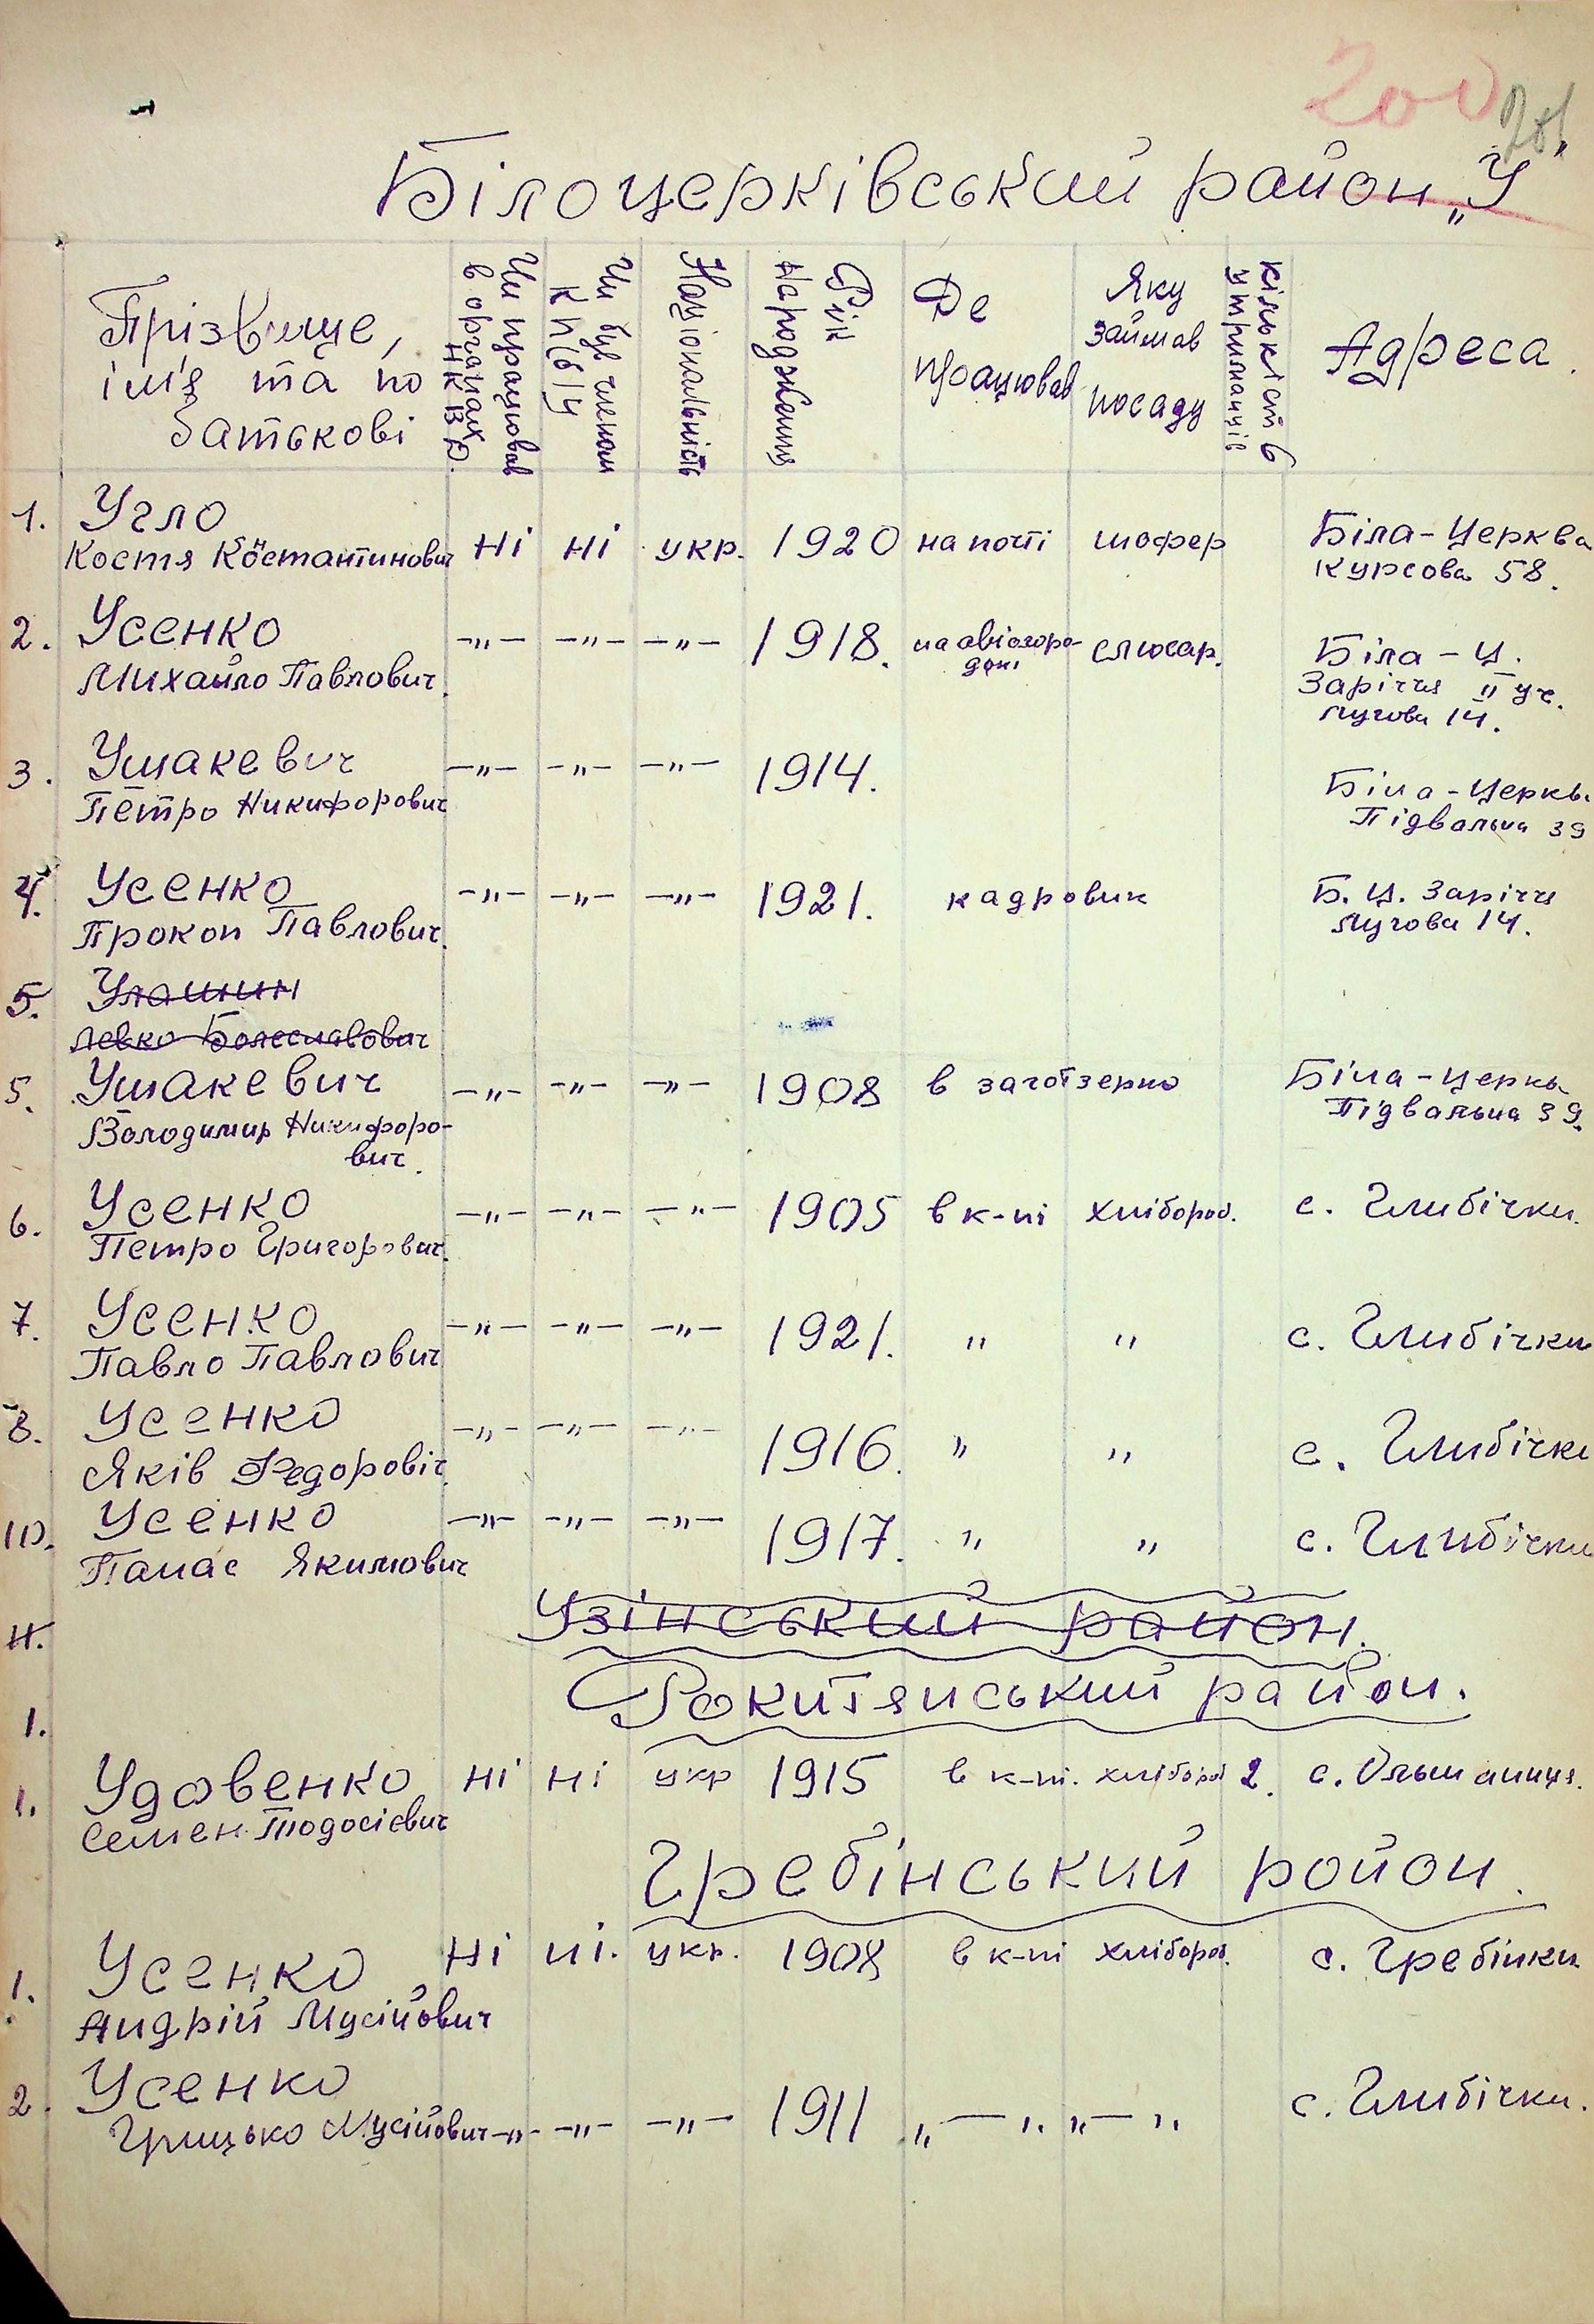 200
201
Білоцерківський район „У"
Прізвище, ім'я та по батькові
Чи працював в органах НКВД.
Чи був членом КП(б)У
Національність
Рік народження
Де працював
Яку займав посаду
Кількість утриманців
Адреса.
1. Угло Ні ні укр. 1920 на пошті шофер Біла-Церква
Костя Костантинович Курсова 58.
2. Усенко -„- -„- -„- 1918. на авіогоро- слюсар. Біла-Ц.
Михайло Павлович. дкі Заріччя II уч.
Лугова 14.
3. Ушакевич -„- -„- -„- 1914. Біла-Церкв.
Петро Никифорович Підвальна 39
4. Усенко -„- -„- -„- 1921. кадровик Б. Ц. Заріччя
Прокоп Павлович. Лугова 14.
5. Улашин
Левко Болеславович
5. Ушакевич -„- -„- -„- 1908 в заготзерно Біла-церкв
Володимир Никифоро- Підвальна 39.
вич.
6. Усенко -„- -„- -„- 1905 в к-пі хлібороб. с. Глибічки.
Петро Григорович.
7. Усенко -„- -„- -„- 1921. " " с. Глибічки
Павло Павлович
8. Усенко -„- -„- -„- 1916. " " с. Глибічки
Яків Федоровіч.
10. Усенко -„- -„- -„- 1917. " " с. Глибічки
Панас Якимович
11. Узінський район.
1. Рокитянський район.
1. Удовенко ні ні укр 1915 в к-пі. хлібороб 2. с. Ольшаниця.
Семен Тодосієвич
Гребінський район.
1. Усенко Ні ні. укр. 1908 в к-пі хлібороб. с. Гребінки
Андрій Мусійович
2. Усенко с. Глибічки.
Грицько Мусійович -„- -„- -„- 1911 „ — " „ — "